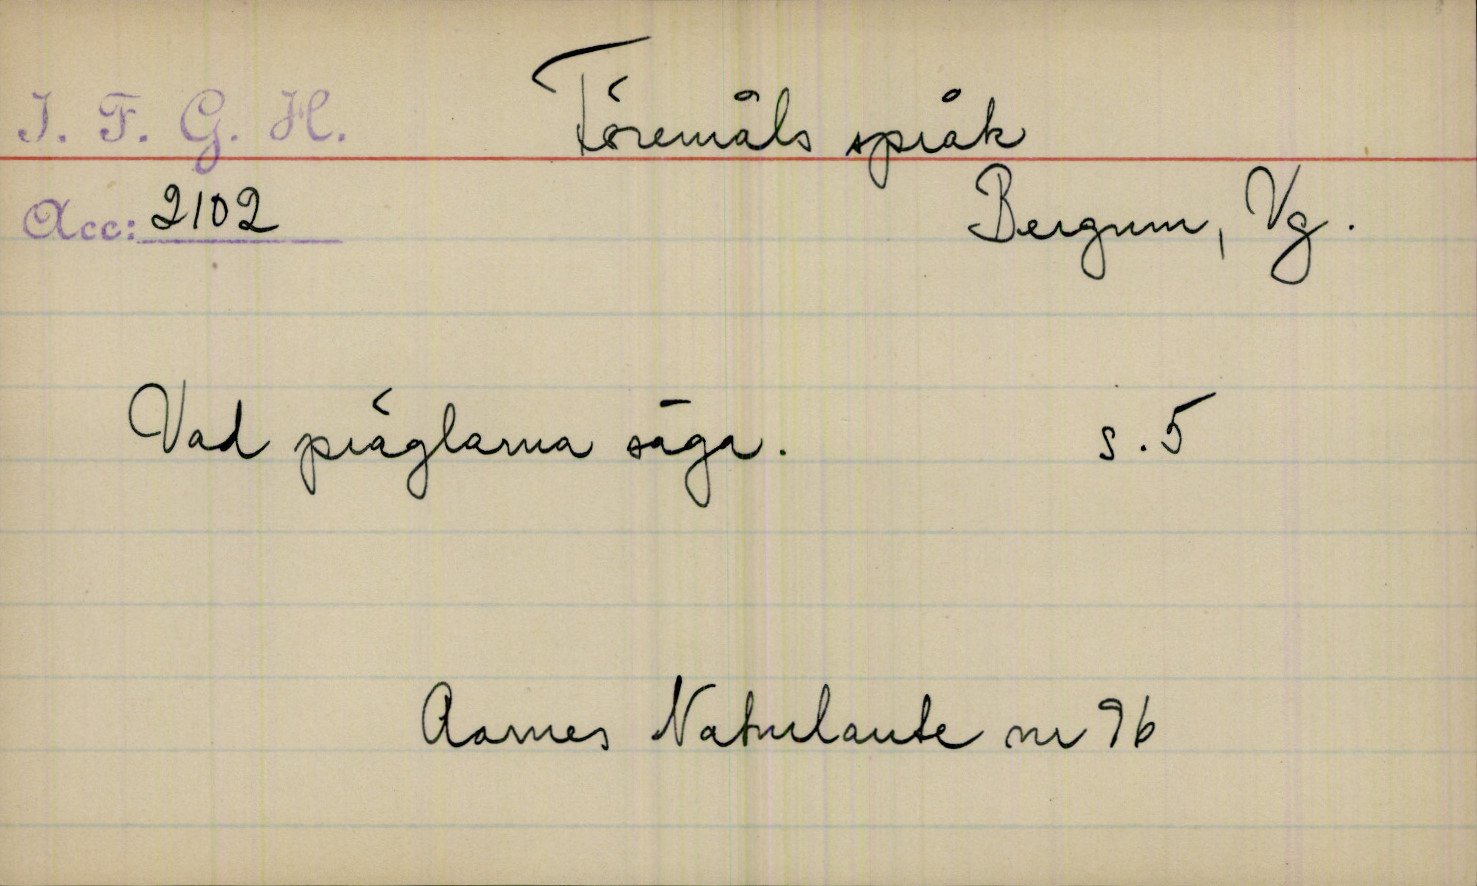 I. F. G. H. Föremåls språk
Acc: 2102 Bergum, Vg.
Vad präglarna säga. s. 5
Aarnes Naturlaute nr 96